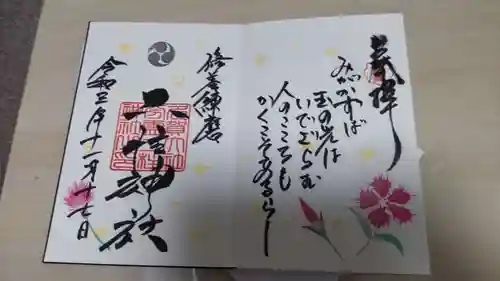 奉拝
みがかずば
玉の光は
いでざらむ
人のこころも
かくこそあるらし
修養練磨
二宮神社
令和三年十一月十七日